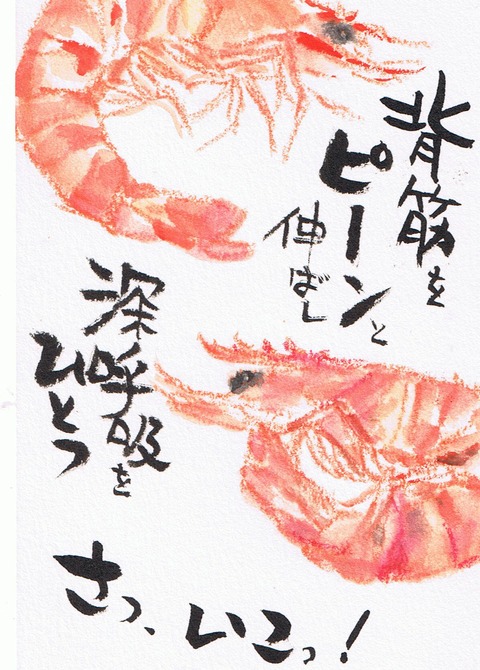 背筋を
ピーンと
伸ばし
深呼吸を
ひとつ
さっ、いこっ!